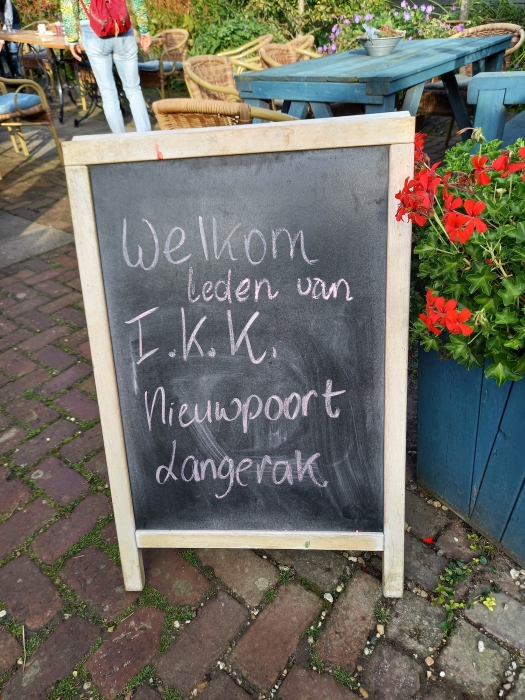 Welkom
leden van
I.K.K.
Nieuwpoort
Langerak